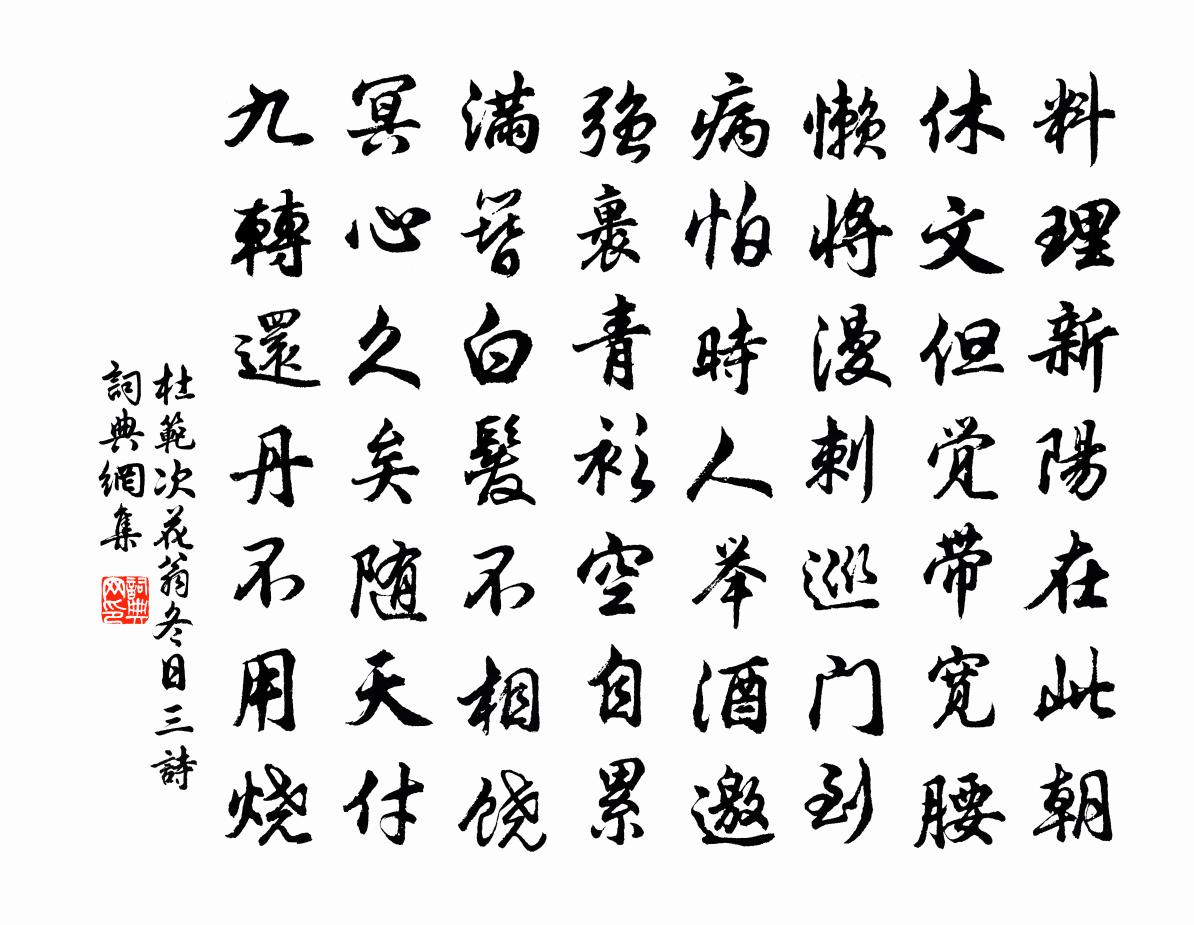 料理新陽在此朝
休文但觉带宽腰
懒将漫刺巡门到
病怕時人举酒邀
强裹青衫空自累
满簪白髮不相饶
冥心久矣随天付
九轉還丹不用烧
杜範次花翁冬日三詩
詞典網集
詞典網印